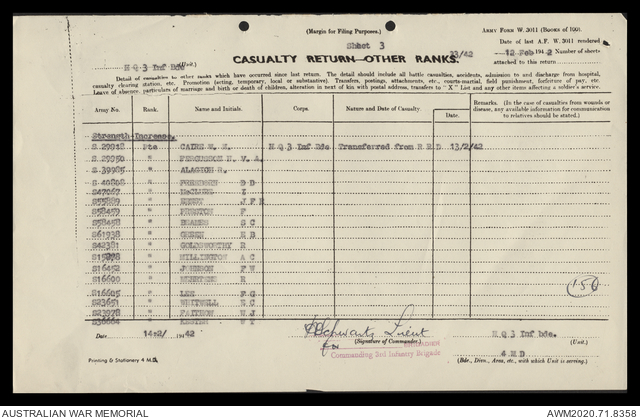 (Margin for Filing Purposes.)
ARMY FORM W. 3011 (BOOKS OF 100).
Sheet 3
Date of last A.F. W. 3011 rendered
12 Feb 1942 Number of sheets
23/42
H Q 3 Inf Bde
CASUALTY RETURN—OTHER RANKS.
attached to this return
Detail of casualties to other ranks which have occurred since last return. The detail should include all battle casualties, accidents, admission to and discharge from hospital,
casualty clearing station, etc. Promotion (acting, temporary, local or substantive). Transfers, postings, attachments, etc., courts-martial, field punishment, forfeiture of pay, etc.
Leave of absence, particulars of marriage and birth or death of children, alteration in next of kin with postal address, transfers to "X" List and any other items affecting a soldier's service.
Army No. Rank. Name and Initials. Corps. Nature and Date of Casualty. Date. Remarks. (In the case of casualties from wounds or disease, any available information for communication to relatives should be stated.)
Strength Increase.
S 29918 Pte H Q 3 Inf Bde Transferred from R R D 13/2/42
S 29950 " FERGUSSON N. V. A.
S 39985 "
S 40808 " D D
S47067 "
S55889 " J F R
S58459 " F
S58458 " S C
S61938 " GREEN R B
S42381 " GOLDSWORTHY R
" MILLINGTON A C
S16452 " JOHNSON F W
S16600 " R
S16605 " LEE F G
S23651 " WHITWELL
S23978 " W J
" W T
150
Date 14/2/ 1942
Schwartz Lieut
for
(Signature of Commander.)
Commanding 3rd Infantry Brigade
H Q 3 Inf Bde.
(Unit.)
4 M D
(Bde., Divn., Area, etc., with which Unit is serving.)
Printing & Stationery 4 M.D.
AUSTRALIAN WAR MEMORIAL
AWM2020.71.8358